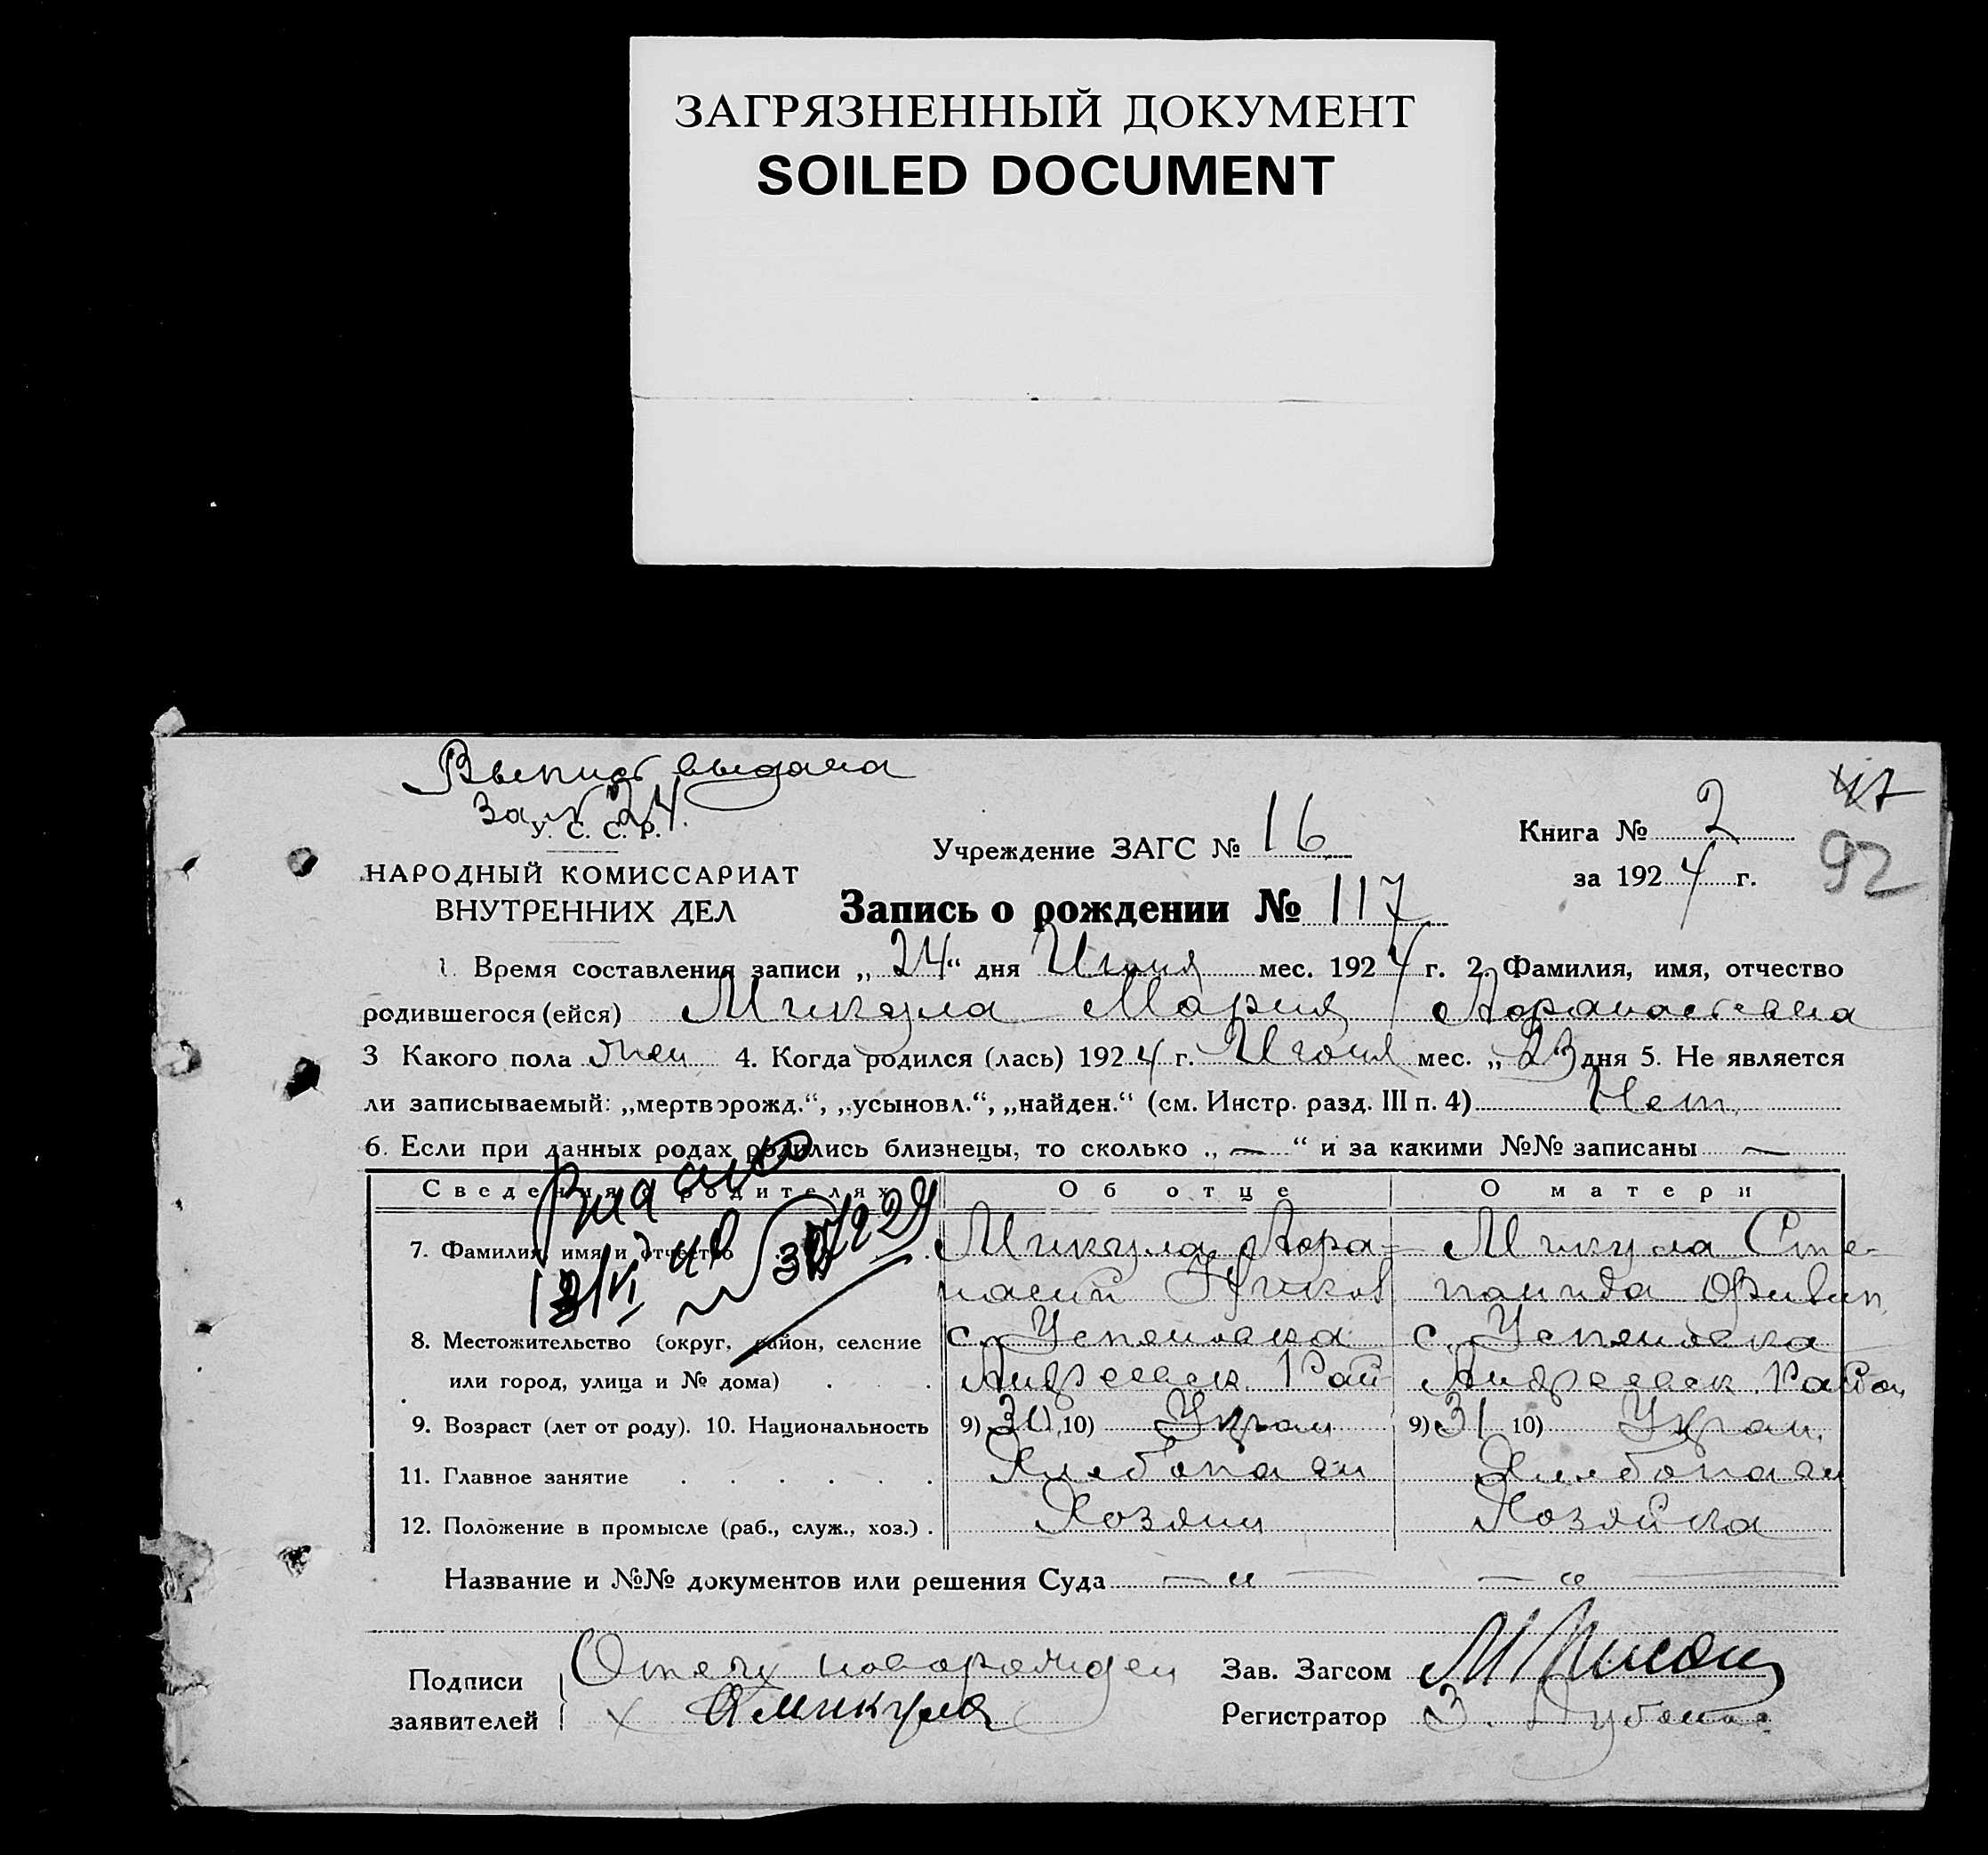 ЗАГРЯЗНЕННЫЙ ДОКУМЕНТ
SOILED DOCUMENT
Выпись выдана
за № 24.
У. С. С. Р.
НАРОДНЫЙ КОМИССАРИАТ
ВНУТРЕННИХ ДЕЛ
Учреждение ЗАГС № 16
Книга № 2
за 1924 г.
92
Запись о рождении № 117
1. Время составления записи „24“ дня Июня мес. 1924 г. 2. Фамилия, имя, отчество
родившегося (ейся) Микула Мария Афанасьевна
3 Какого пола жен 4. Когда родился (лась) 1924 г. Июня мес. „23 дня 5. Не является
ли записываемый: „мертворожд.“, „усыновл.“, „найден.“ (см. Инстр. разд. III п. 4) Нет
6. Если при данных родах родились близнецы, то сколько „—“ и за какими №№ записаны —
Сведения о родителях Об отце О матери
7. Фамилия, имя и отчество Микула Афа- Микула Сте-
насий панида Филип.
8. Местожительство (округ, район, селение с. Успеновка с. Успеновка
или город, улица и № дома) Андреевск. Рай Андреевск. Район
9. Возраст (лет от роду). 10. Национальность 9) 30 10) Украин 9) 31 10) Украин.
11. Главное занятие Хлебопашн Хлебопашн
12. Положение в промысле (раб., служ., хоз.) Хозяин Хозяйка
Название и №№ документов или решения Суда — „ — — „ —
Подписи Отец новорожден Зав. Загсом
заявителей х Микула Регистратор З.